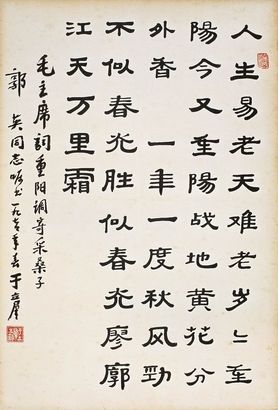 人生易老天难老岁々重
陽今又重陽战地黄花分
外香 一年一度秋风勁
不似春光胜似春光廖廓
江天万里霜
毛主席詞重阳調寄采桑子
郭 同志嘱书一九七年春于